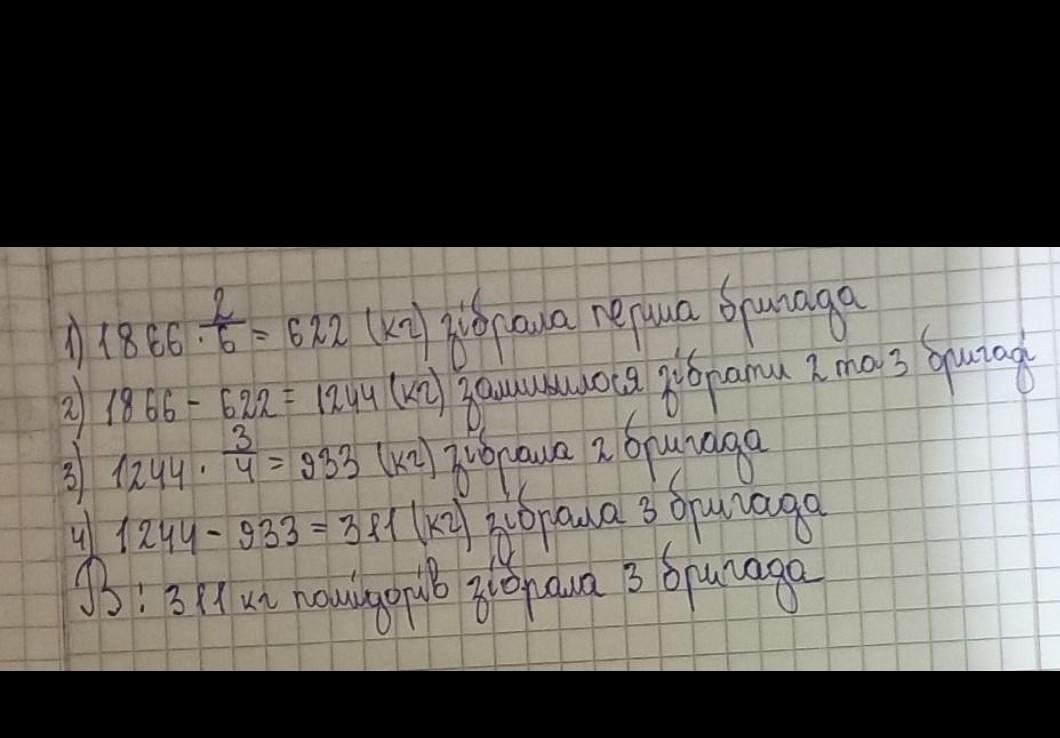 1) 1866 · 2/6 = 622 (кг) зібрала перша бригада
2) 1866 - 622 = 1244 (кг) залишилося зібрати 2 та 3 бригаді
3) 1244 · 3/4 = 933 (кг) зібрала 2 бригада
4) 1244 - 933 = 311 (кг) зібрала 3 бригада
В: 311 кг помідорів зібрала 3 бригада